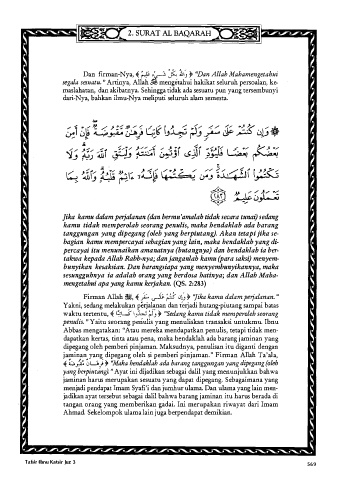 2. SURAT AL BAQARAH
Dan firman-Nya, ﴿ وَاللَّهُ بِكُلِّ شَيْءٍ عَلِيمٌ ﴾ "Dan Allah Mahamengetahui
segala sesuatu." Artinya, Allah ﷻ mengetahui hakikat seluruh persoalan, ke-
maslahatan, dan akibatnya. Sehingga tidak ada sesuatu pun yang tersembunyi
dari-Nya, bahkan ilmu-Nya meliputi seluruh alam semesta.
۞ وَإِن كُنتُمْ عَلَىٰ سَفَرٍ وَلَمْ تَجِدُوا كَاتِبًا فَرِهَٰنٌ مَّقْبُوضَةٌ ۖ فَإِنْ أَمِنَ
بَعْضُكُم بَعْضًا فَلْيُؤَدِّ الَّذِي اؤْتُمِنَ أَمَٰنَتَهُ وَلْيَتَّقِ اللَّهَ رَبَّهُ ۗ وَلَا
تَكْتُمُوا الشَّهَٰدَةَ ۚ وَمَن يَكْتُمْهَا فَإِنَّهُ ءَاثِمٌ قَلْبُهُ ۗ وَاللَّهُ بِمَا
تَعْمَلُونَ عَلِيمٌ ﴿٢٨٣﴾
Jika kamu dalam perjalanan (dan bermu'amalah tidak secara tunai) sedang
kamu tidak memperoleh seorang penulis, maka hendaklah ada barang
tanggungan yang dipegang (oleh yang berpiutang). Akan tetapi jika se-
bagian kamu mempercayai sebagian yang lain, maka hendaklah yang di-
percayai itu menunaikan amanatnya (hutangnya) dan hendaklah ia ber-
takwa kepada Allah Rabb-nya; dan janganlah kamu (para saksi) menyem-
bunyikan kesaksian. Dan barangsiapa yang menyembunyikannya, maka
sesungguhnya ia adalah orang yang berdosa hatinya; dan Allah Maha-
mengetahui apa yang kamu kerjakan. (QS. 2:283)
Firman Allah ﷻ, ﴿ وَإِن كُنتُمْ عَلَىٰ سَفَرٍ ﴾ "Jika kamu dalam perjalanan."
Yakni, sedang melakukan perjalanan dan terjadi hutang-piutang sampai batas
waktu tertentu, ﴿ وَلَمْ تَجِدُوا كَاتِبًا ﴾ "Sedang kamu tidak memperoleh seorang
penulis." Yaitu seorang penulis yang menuliskan transaksi untukmu. Ibnu
Abbas mengatakan: "Atau mereka mendapatkan penulis, tetapi tidak men-
dapatkan kertas, tinta atau pena, maka hendaklah ada barang jaminan yang
dipegang oleh pemberi pinjaman. Maksudnya, penulisan itu diganti dengan
jaminan yang dipegang oleh si pemberi pinjaman." Firman Allah Ta'ala,
﴿ فَرِهَانٌ مَّقْبُوضَةٌ ﴾ "Maka hendaklah ada barang tanggungan yang dipegang (oleh
yang berpiutang)." Ayat ini dijadikan sebagai dalil yang menunjukkan bahwa
jaminan harus merupakan sesuatu yang dapat dipegang. Sebagaimana yang
menjadi pendapat Imam Syafi'i dan jumhur ulama. Dan ulama yang lain men-
jadikan ayat tersebut sebagai dalil bahwa barang jaminan itu harus berada di
tangan orang yang memberikan gadai. Ini merupakan riwayat dari Imam
Ahmad. Sekelompok ulama lain juga berpendapat demikian.
Tafsir Ibnu Katsir Juz 3
569